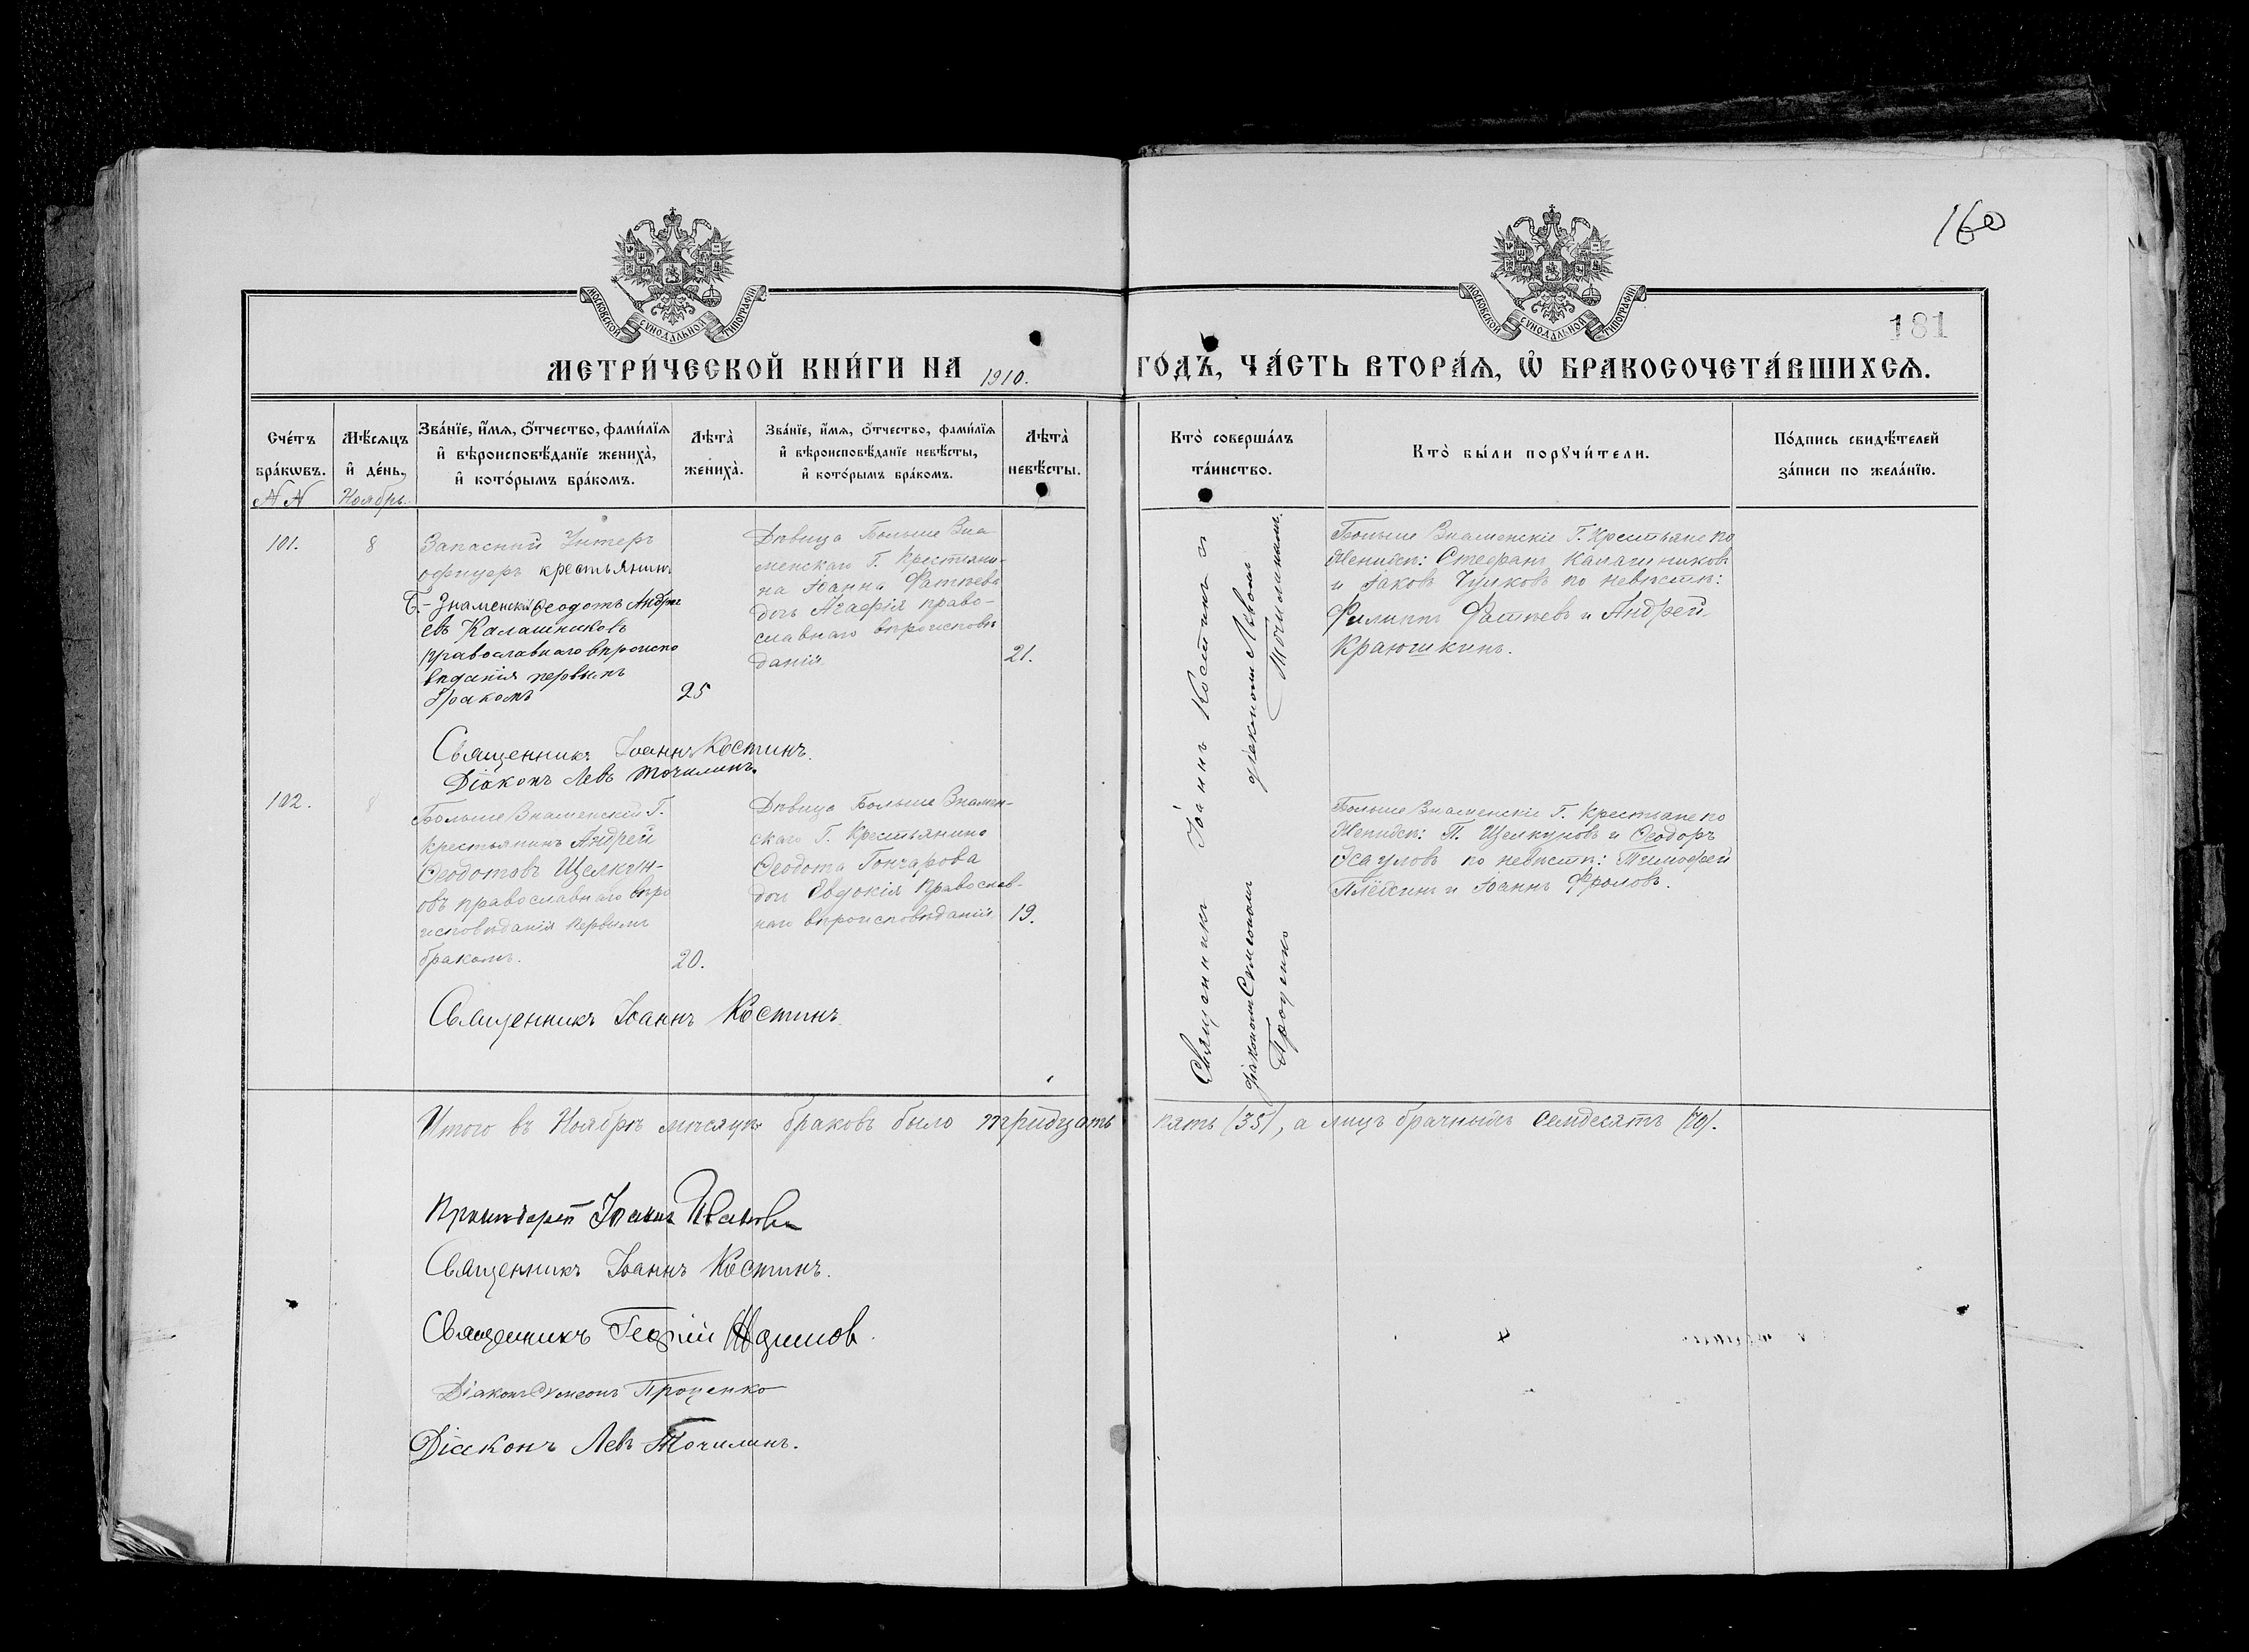 160
181
МОСКОВСКОЙ СУНОДАЛЬНОЙ ТИПОГРАФІИ
МОСКОВСКОЙ СУНОДАЛЬНОЙ ТИПОГРАФІИ
МЕТРИ́ЧЕСКОЙ КНИ́ГИ НА 1910. ГО́ДЪ, ЧА́СТЬ ВТОРА́Ѧ, Ѿ БРАКОСОЧЕТА́ВШИХСѦ.
Сче́тъ
бра́кѡвъ.
№№
Мѣ́сѧцъ
и҆ де́нь.
Ноябрь.
Зва́нїе, и҆́мѧ, ѻ҆́тчество, фами́лїѧ
и҆ вѣроисповѣ́данїе жениха̀,
и҆ кото́рымъ бра́комъ.
Лѣта̀
жениха̀.
Зва́нїе, и҆́мѧ, ѻ҆́тчество, фами́лїѧ
и҆ вѣроисповѣ́данїе невѣ́сты,
и҆ кото́рымъ бра́комъ.
Лѣта̀
невѣ́сты.
Кто̀ соверша́лъ
та́инство.
Кто̀ бы́ли порꙋчи́тели.
По́дпись свидѣ́телей
за́писи по жела́нїю.
101.
8
Запасный Унтеръ
офицеръ крестьянинъ
Б.-Знаменскій Ѳеодотъ Андре
евъ Калашниковъ
православнаго вѣроиспо
вѣданія первымъ
бракомъ
25
Дѣвица Больше Зна-
менскаго Г. Крестьяни-
на Іоанна Фатѣева
дочь Агафія право-
славнаго вѣроисповѣ
данія
21.
Священникъ Іоаннъ Костинъ и
діакономъ Львомъ
Точилинымъ.
Больше Знаменскіе Г. Крестьяне по
Женихѣ: Стефанъ Калашниковъ
и Іаковъ Чулковъ по невѣстѣ:
Филиппъ Фатѣевъ и Андрей
Краюшкинъ.
Священникъ Іоаннъ Костинъ.
Діаконъ Левъ Точилинъ.
102.
8
Больше Знаменскій Г.
крестьянинъ Андрей
Ѳеодотовъ Щелкун-
овъ православнаго вѣро
исповѣданія первымъ
бракомъ.
20.
Дѣвица Больше Знамен-
скаго Г. Крестьянина
Ѳеодота Гончарова
дочь Евдокія Православ-
наго вѣроисповѣданія
19.
діакономъ Симеономъ
Проценко
Больше Знаменскіе Г. Крестьяне по
Женихѣ: П. Щелкуновъ и Ѳеодоръ
Есауловъ по невѣстѣ: Тимофей
и Іоаннъ Фроловъ.
Священникъ Іоаннъ Костинъ
Итого въ Ноябрѣ мѣсяцѣ браковъ было тридцать пять (35), а лицъ брачныхъ семдесятъ (70).
Протоіерей Іоаннъ Ивановъ
Священникъ Іоаннъ Костинъ.
Священникъ Георгій
Діаконъ Симеонъ Проценко
Діаконъ Левъ Точилинъ.